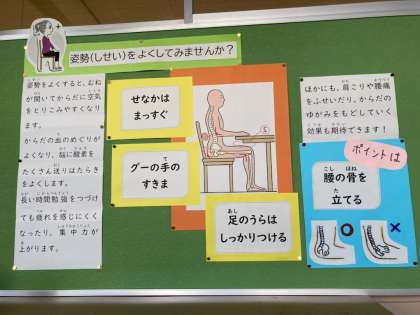 姿勢(しせい)をよくしてみませんか？
姿勢をよくすると、むね
が開いてからだに空気
をとりこみやすくなり
ます。
からだの血のめぐりが
よくなり、脳に酸素を
たくさん送りはたらき
をよくします。
長い時間勉強をつづけ
ても疲れを感じにくく
なったり、集中力が
上がります。
せなかは
まっすぐ
グーの手の
すきま
足のうらは
しっかりつける
ほかにも、肩こりや腰痛
をふせいだり、からだの
ゆがみをもどしていく
効果も期待できます！
ポイントは
腰の骨を
立てる